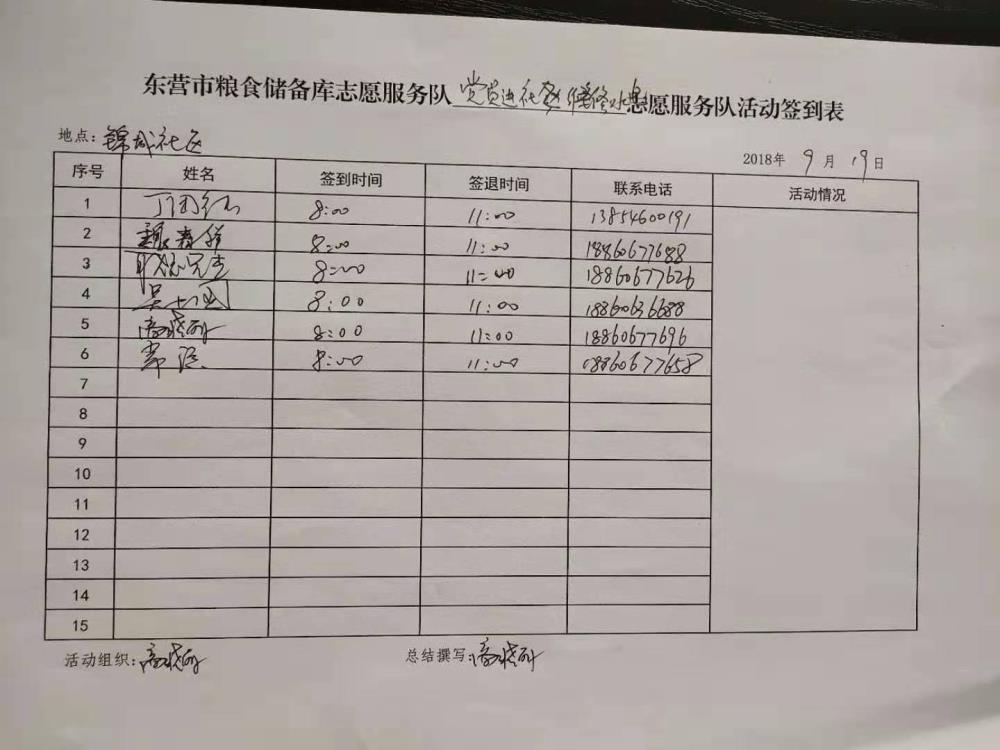 东营市粮食储备库志愿服务队党员进社区维修水电志愿服务队活动签到表
地点：锦城社区
2018年 9 月 19日
序号 姓名 签到时间 签退时间 联系电话 活动情况
1 8:00 11:00 13854600191
2 8:00 11:00 18860677688
3 8:00 11:00 18860677626
4 8:00 11:00 18860636688
5 8:00 11:00 18860677696
6 8:00 11:00 18860677658
7
8
9
10
11
12
13
14
15
活动组织： 总结撰写：